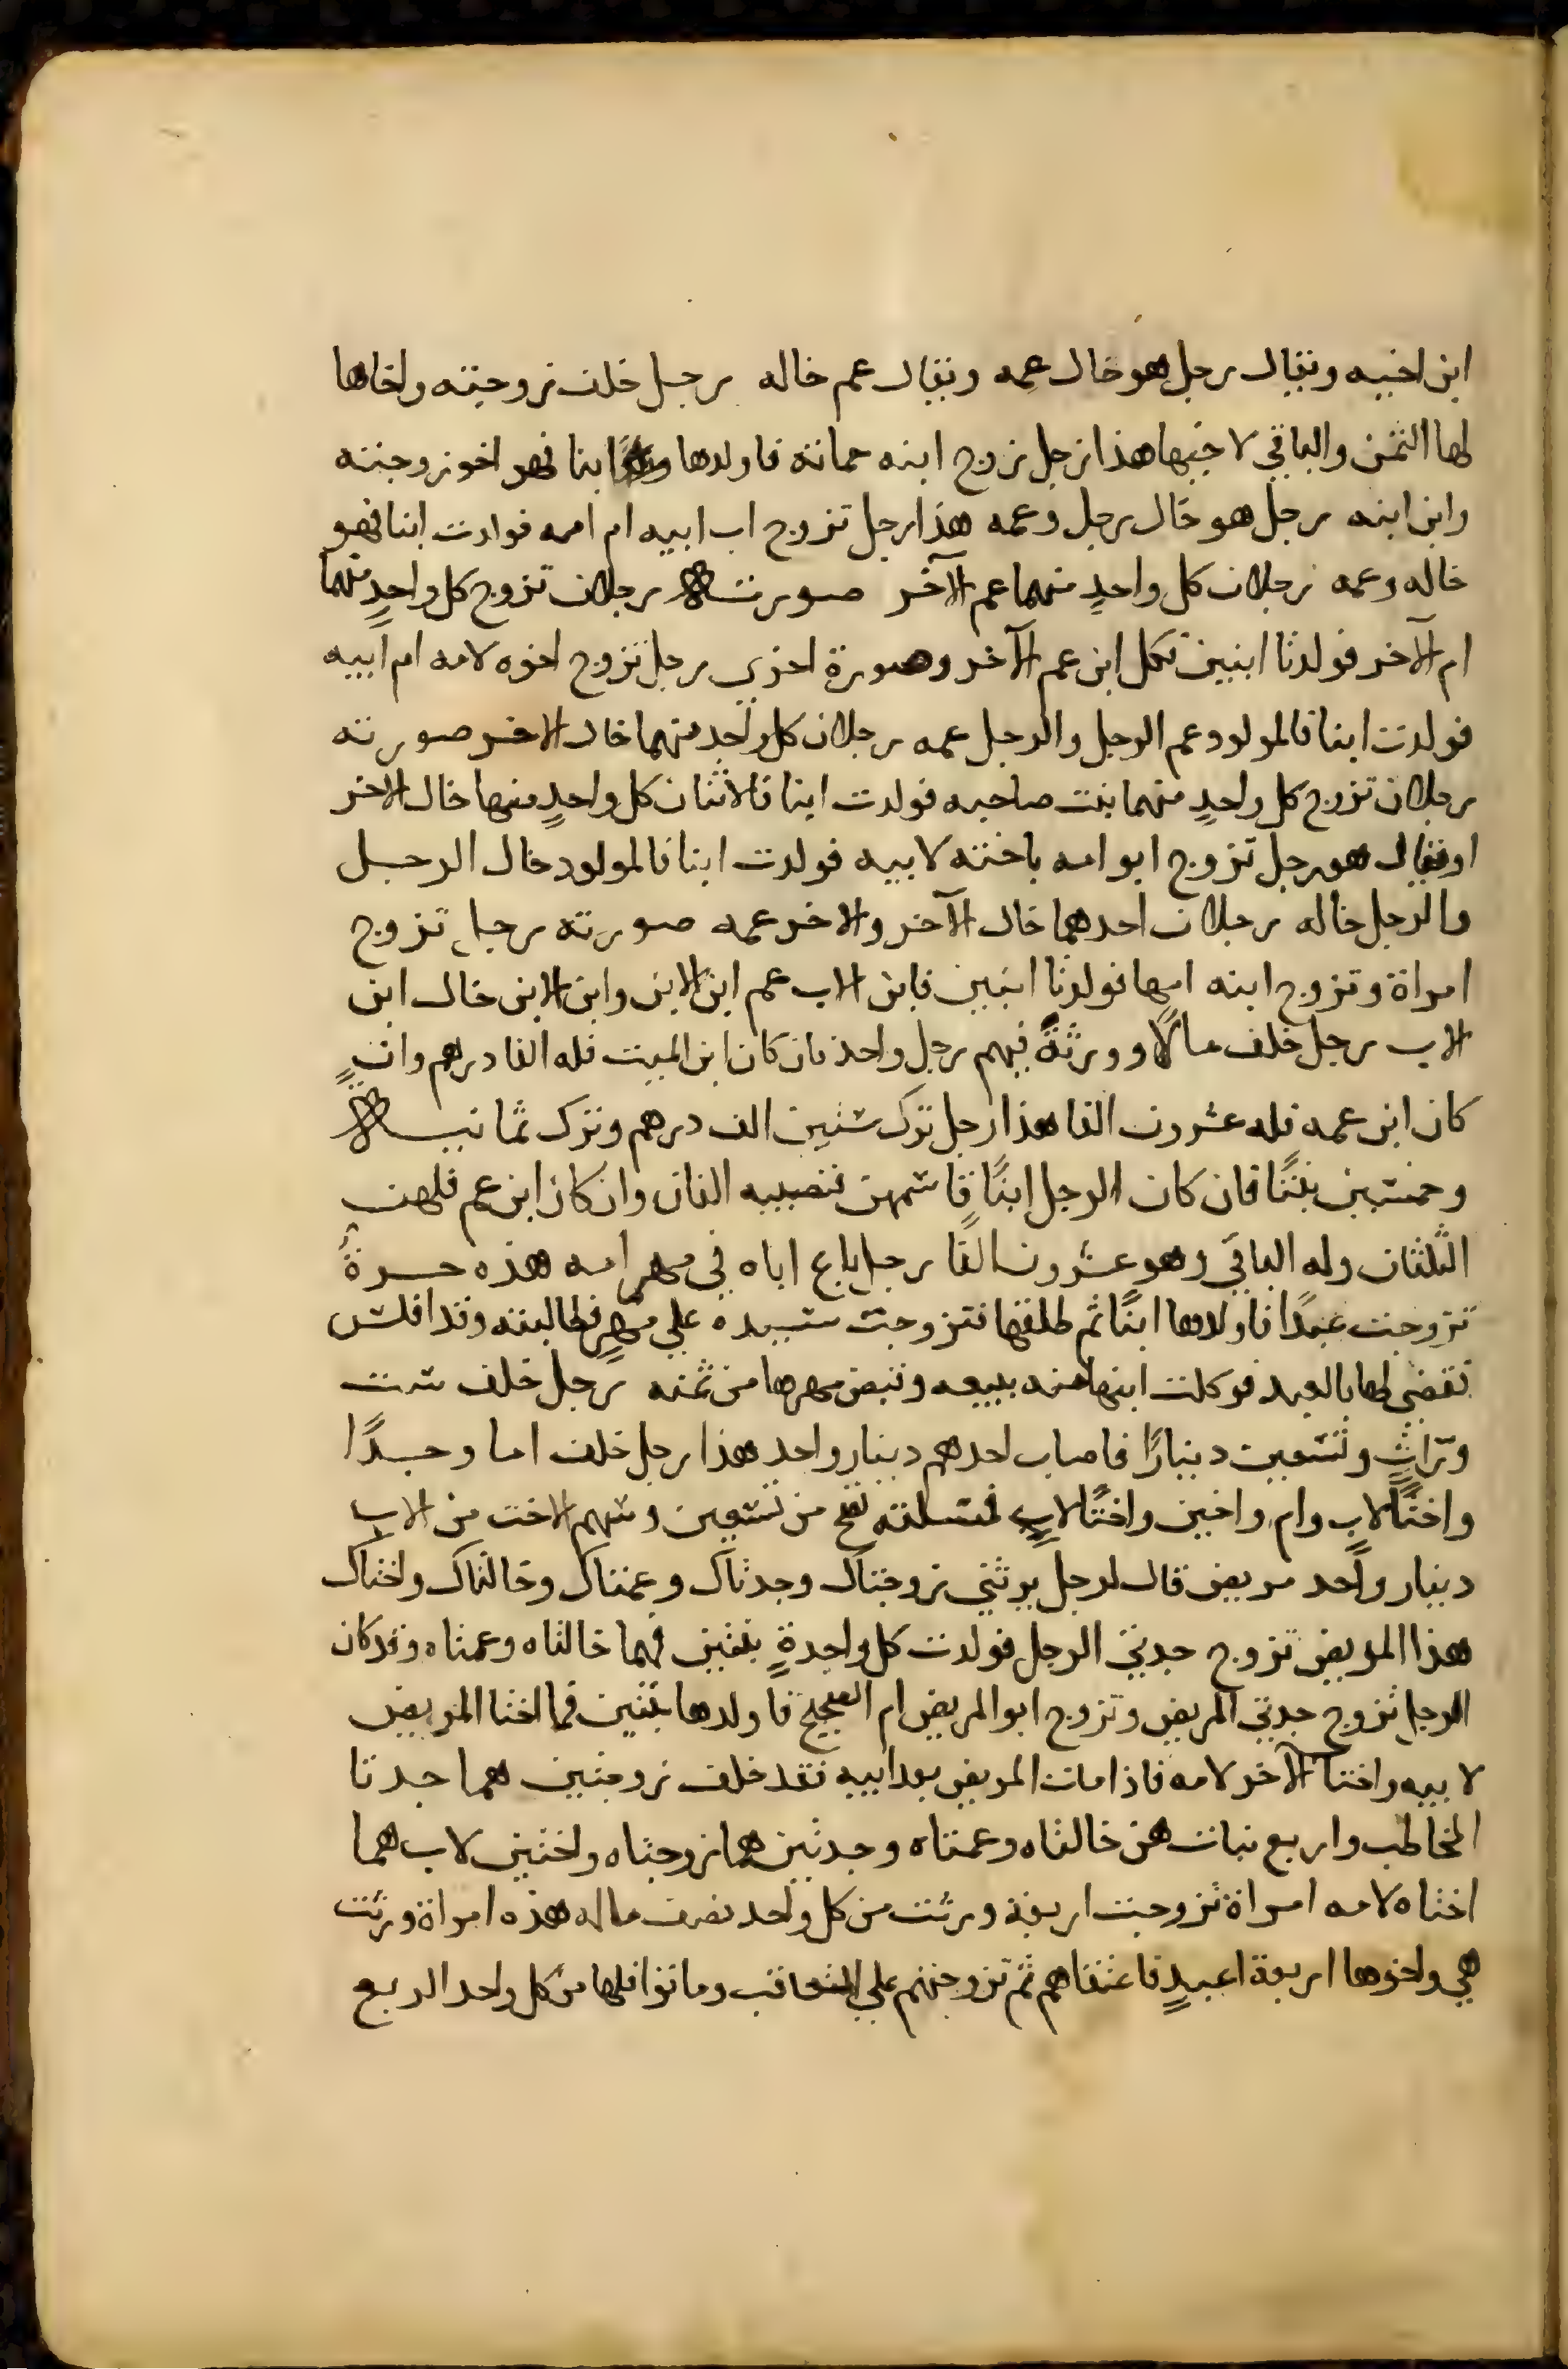 ابن اخيه ويقال رجل هو خال عمه ويقال عم خاله رجل خلف زوجته واخاها
لها الثمن والباقي لاخيها هذا رجل تزوج ابنه حماته فاولدها ابنا فهو اخو زوجته
وابن ابنه رجل هو خال رجل وعمه هذا رجل تزوج اب ابيه ام امه فولدت ابنا فهو
خاله وعمه رجلان كل واحدٍ منهما عم الآخر صورته رجلان تزوج كل واحدٍ منهما
ام الآخر فولدتا ابنين فكل ابن عم الآخر وصورة اخري رجل تزوج اخوه لامه ام ابيه
فولدت ابنا فالمولود عم الرجل والرجل عمه رجلان كل واحد منهما خال الاخر صورته
رجلان تزوج كل واحدٍ منهما بنت صاحبه فولدت ابنا فالاثنان كل واحدٍ منهما خال الاخر
او يقال هو رجل تزوج ابو امه باخته لابيه فولدت ابنا فالمولود خال الرجل
والرجل خاله رجلان احدهما خال الآخر والاخر عمه صورته رجل تزوج
امراة وتزوج ابنه امها فولدتا ابنين فابن الاب عم ابن الابن وابن الابن خال ابن
الاب رجل خلف مالًا وورثةً فيهم رجل واحد فان كان ابن الميت فله الفا درهم وان
كان ابن عمه فله عشرون الفا هذا رجل ترك ستين الف درهم وترك ثمانية
وخمسين بنتًا فان كان الرجل ابنًا قاسمهن فنصيبه الفان وان كان ابن عم فلهن
الثلثان وله الباقي وهو عشرون الفًا رجل باع اباه في مهر امه هذه حرةٌ
تزوجت عبدًا فاولدها ابنًا ثم طلقها فتزوجت سيده علي مهرٍ فطالبته وقد افلس
فقضي لها بالعبد فوكلت ابنها منه ببيعه وقبض مهرها من ثمنه رجل خلف ست
وراثٍ وتسعين دينارًا فاصاب احدهم دينار واحد هذا رجل خلف اما وجدًا
واختًا لابٍ وام واخين واختًا لابٍ فمسلته تصح من تسعين وسهم الاخت من الاب
دينار واحد مريض قال لرجل يرثني زوجتاك وجدتاك وعمتاك وخالتاك واختاك
هذا المريض تزوج جدتي الرجل فولدت كل واحدةٍ بنتين فهما خالتاه وعمتاه وقد كان
الرجل تزوج جدتي المريض وتزوج ابو المريض ام الصحيح فاولدها بنتين فهما اختا المريض
لابيه واختا الآخر لامه فاذا مات المريض بعد ابيه فقد خلف زوجتين هما جدتا
المخاطب واربع بنات هن خالتاه وعمتاه وجدتين هما زوجتاه واختين لاب هما
اختاه لامه امراة تزوجت اربعة ورثت من كل واحد نصف ماله هذه امراة ورثت
هي واخوها اربعة اعبيدٍ فاعتقاهم ثم تزوجتهم علي التعاقب وماتوا فلها من كل واحد الربع